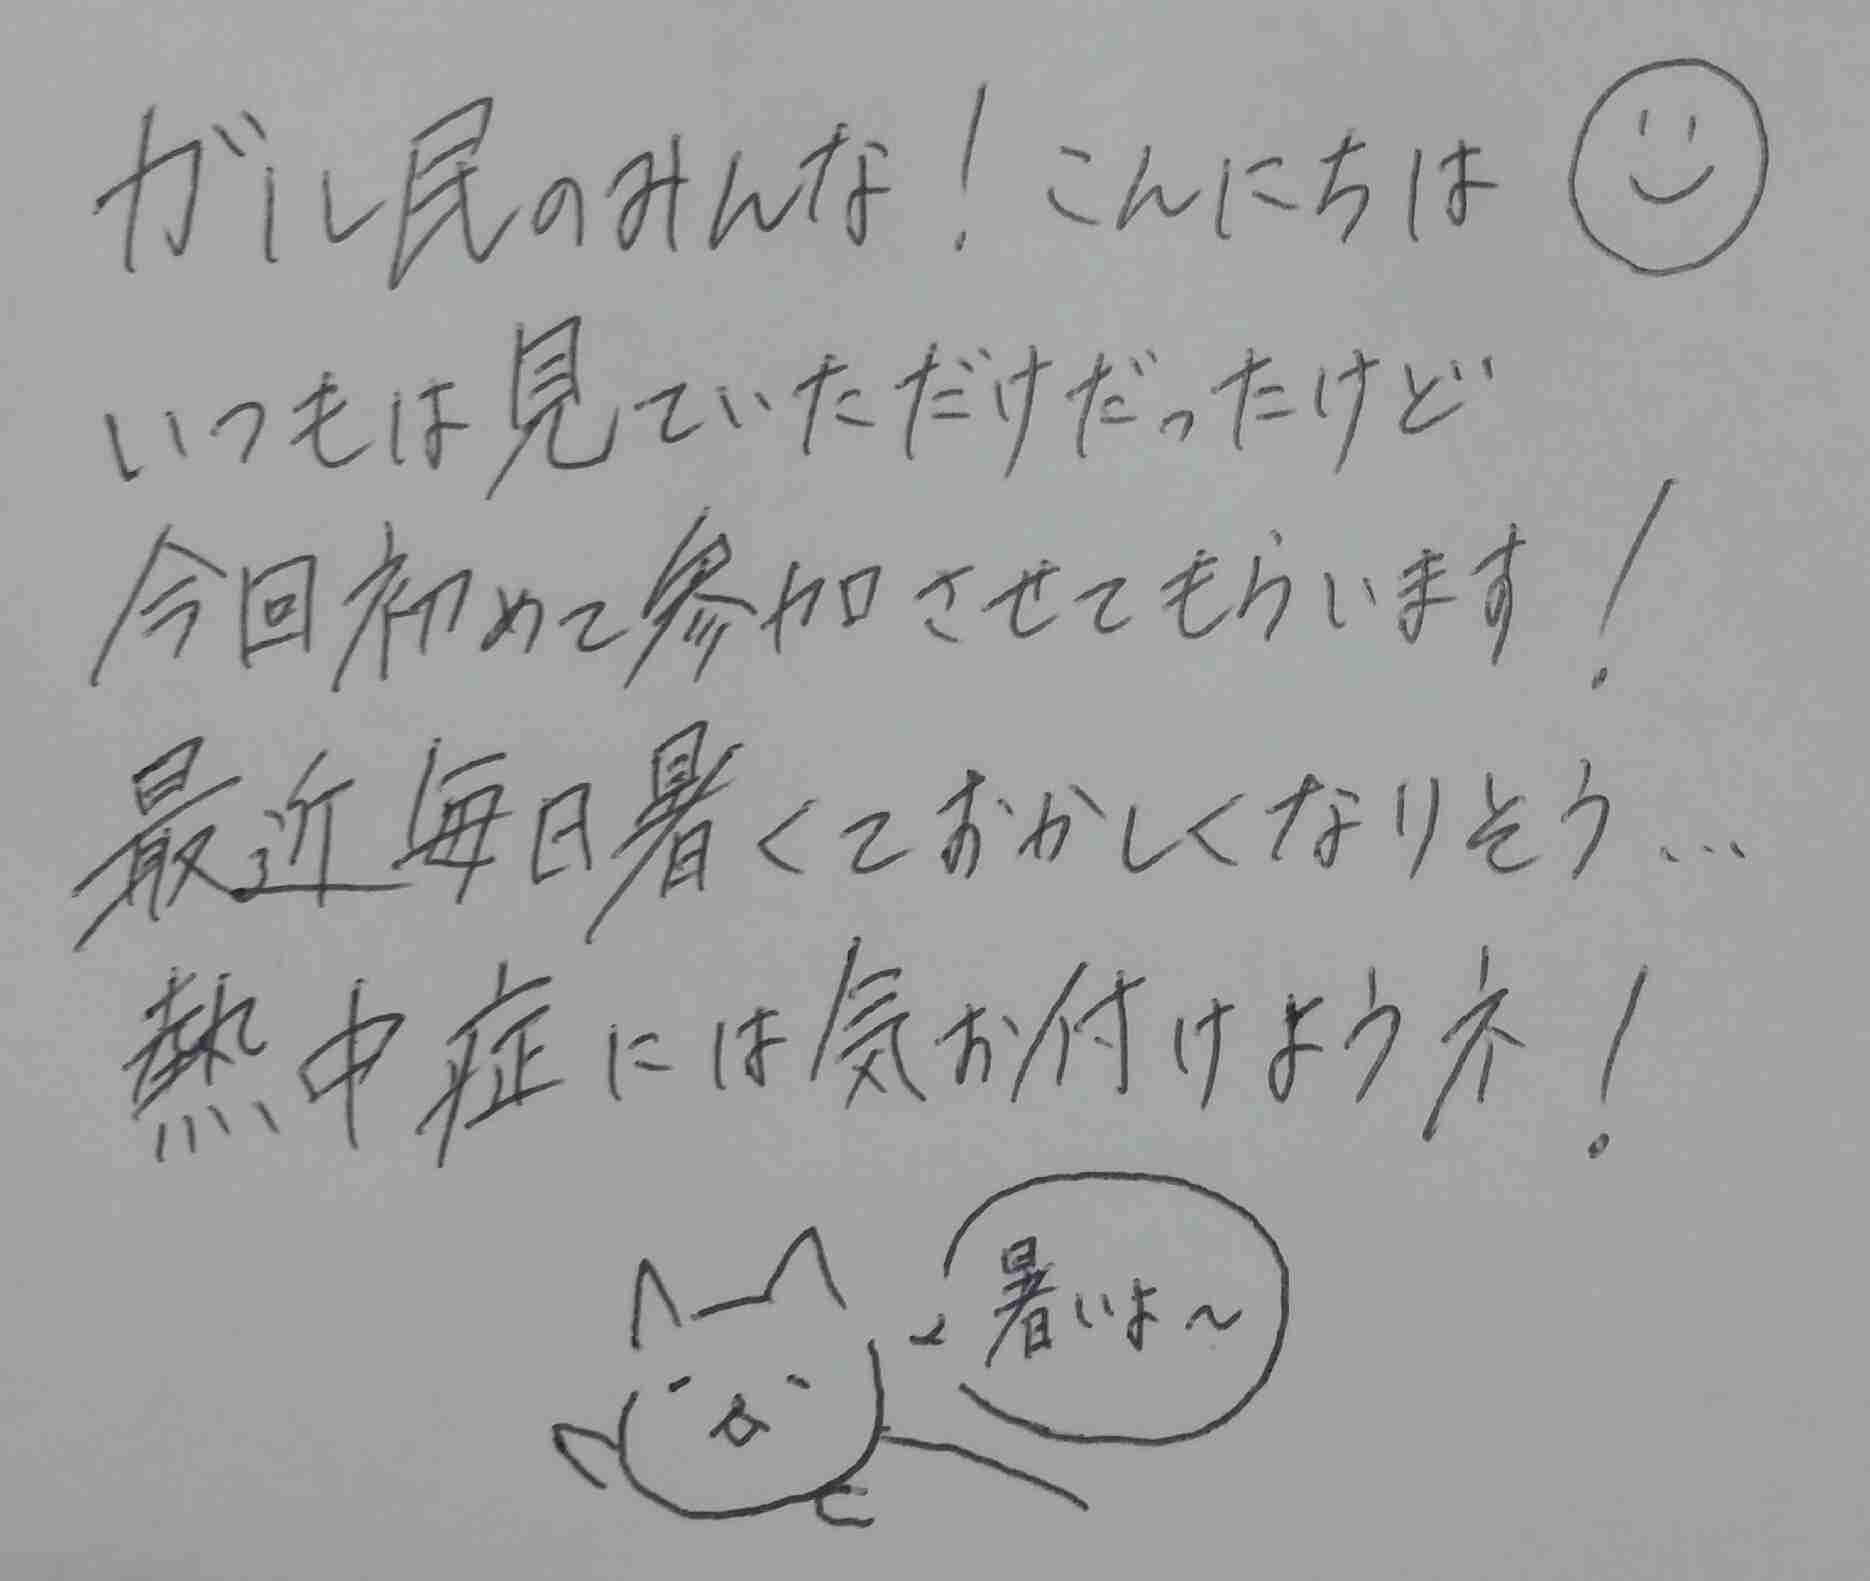 ガル民のみんな！こんにちは
いつもは見ていただけだったけど
今回初めて参加させてもらいます！
最近毎日暑くておかしくなりそう…
熱中症には気お付けようネ！
暑いよ～